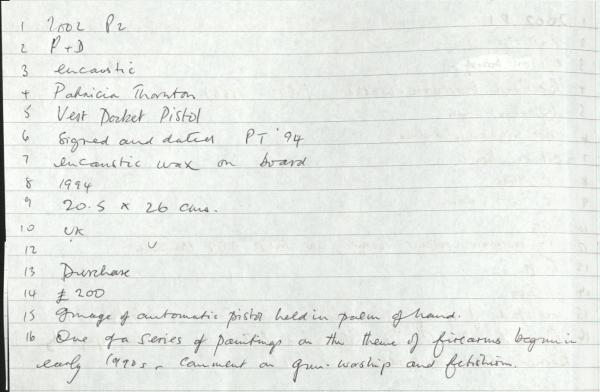 1 2002 P2
2 P+D
3 encaustic
4 Patricia Thornton
5 Vest Pocket Pistol
6 Signed and dated PT '94
7 encaustic wax on board
8 1994
9 20.5 x 26 cms.
10 UK
12
13 Purchase
14 £200
15 Image of automatic pistol held in palm of hand.
16 One of a series of paintings on the theme of firearms begun in
early 1990s, comment on gun-worship and fetishism.